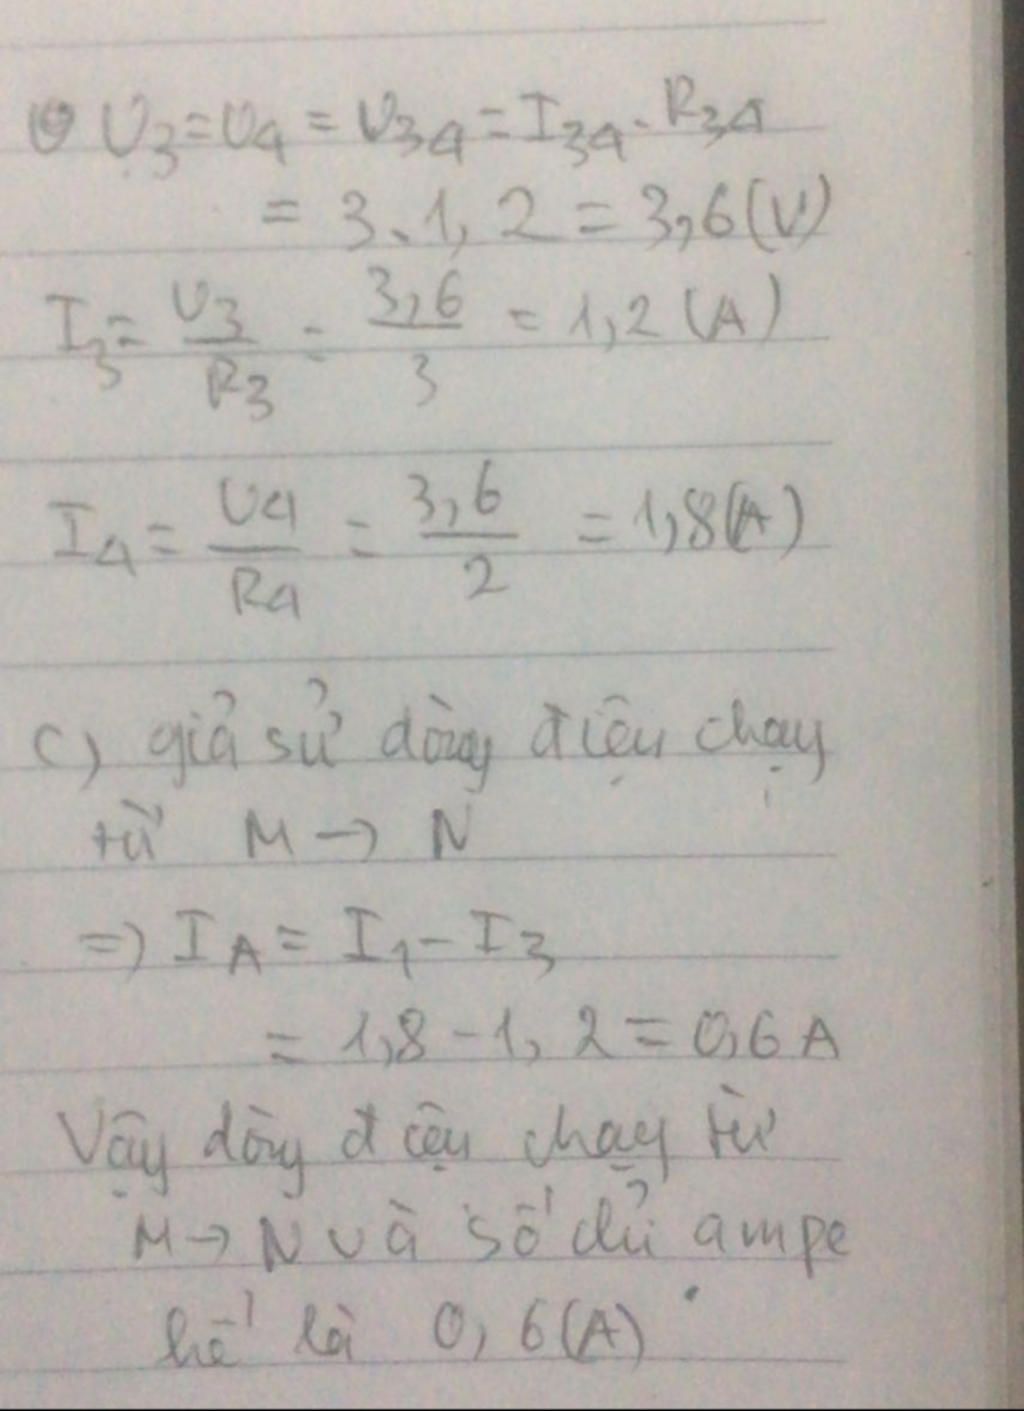 U3 = U4 = U34 = I34 . R34
= 3.1,2 = 3,6 (V)
I3 = U3/R3 = 3,6/3 = 1,2 (A)
I4 = U4/R4 = 3,6/2 = 1,8 (A)
c) giả sử dòng điện chạy
từ M → N
=) IA = I1 - I3
= 1,8 - 1,2 = 0,6 A
Vậy dòng điện chạy từ
M → N và số chỉ ampe
kế là 0,6 (A)